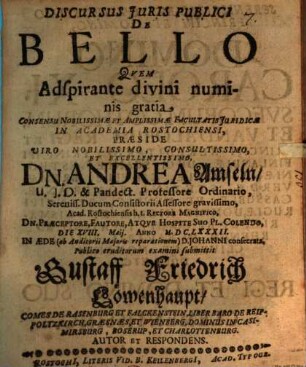 DISCURSUS JURIS PUBLICI
7.
DE
BELLO
QVEM
Adspirante divini numi-
nis gratia
CONSENSU NOBILISSIMÆ ET AMPLISSIMÆ FACULTATIS JURIDICÆ
IN ACADEMIA ROSTOCHIENSI,
PRÆSIDE
VIRO NOBILISSIMO, CONSULTISSIMO,
ET EXCELLENTISSIMO,
DN. ANDREA Amseln/
U. J. D. & Pandect. Professore Ordinario,
Sereniss. Ducum Consistorii Assessore gravissimo,
Acad. Rostochiensis h. t. RECTORE MAGNIFICO,
DN. PRÆCEPTORE, FAUTORE, ATQVE HOSPITE SUO PL. COLENDO,
DIE XVIII. Maij. ANNO M DC LXXXII.
IN ÆDE (ob Auditorii Majoris reparationem) D. JOHANNI consecrata,
Publico eruditorum examini submittit
Gustaff Friedrich
Löwenhaupt/
COMES DE RASENBURG ET FALCKENSTEIN, LIBER BARO DE REIP-
POLTZKIRCH, GRÆGNÆS, ET WIENBERG, DOMINUS IN CASI-
MIRSBURG, BOSERUP, ET CHARLOTTENBURG.
AUTOR ET RESPONDENS.
ROSTOCHI, LITERIS VID. B. KEILENBERGI, ACAD. TYPOGR.